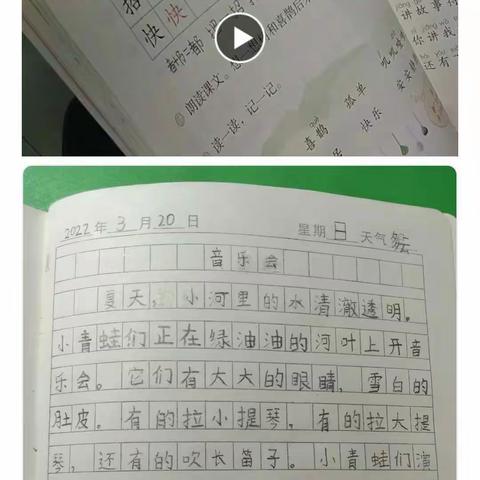 快 快
朗读课文。
和喜鹊后来
读一读，记一记。
喜鹊 孤单
快乐
讲故事
你讲我
还有一
2022年3月20日 星期日 天气多云
音乐会
夏天，小河里的水清澈透明。
小青蛙们正在绿油油的河叶上开音
乐会。它们有大大的眼睛，雪白的
肚皮。有的拉小提琴，有的拉大提
琴，还有的吹长笛子。小青蛙们演